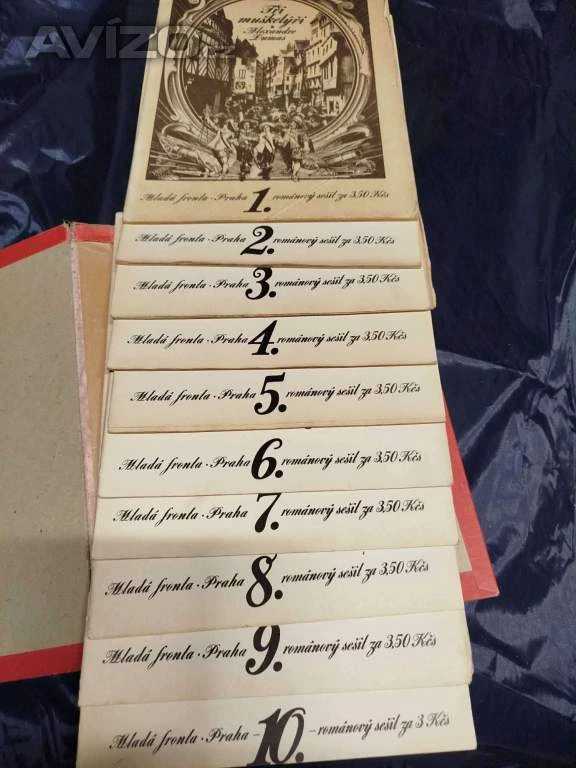 Avízo
Tři
mušketýři
Alexandre
Dumas
Mladá fronta · Praha 1. románový sešit za 3,50 Kčs
Mladá fronta · Praha 2. románový sešit za 3,50 Kčs
Mladá fronta · Praha 3. románový sešit za 3,50 Kčs
Mladá fronta · Praha 4. románový sešit za 3,50 Kčs
Mladá fronta · Praha 5. románový sešit za 3,50 Kčs
Mladá fronta · Praha 6. románový sešit za 3,50 Kčs
Mladá fronta · Praha 7. románový sešit za 3,50 Kčs
Mladá fronta · Praha 8. románový sešit za 3,50 Kčs
Mladá fronta · Praha 9. románový sešit za 3,50 Kčs
Mladá fronta · Praha – 10. – románový sešit za 3 Kčs